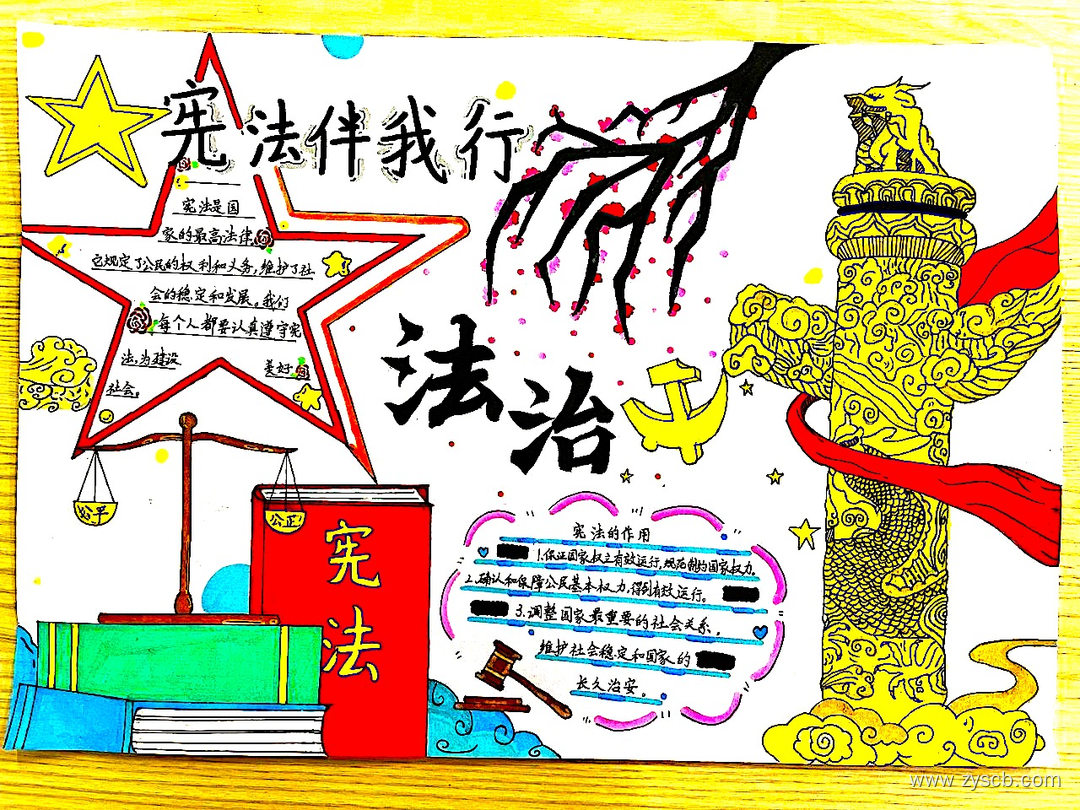 宪法伴我行
宪法是国
家的最高法律
它规定了公民的权利和义务,维护了社
会的稳定和发展。我们
每个人都要认真遵守宪
法,为建设 美好
社会。
法治
公平
公正
宪法
宪法的作用
1.保证国家权立有效运行,规范制约国家权力
2.确认和保障公民基本权力,得到有效运行。
3.调整国家最重要的社会关系,
维护社会稳定和国家的
长久治安。
www.zyscb.com